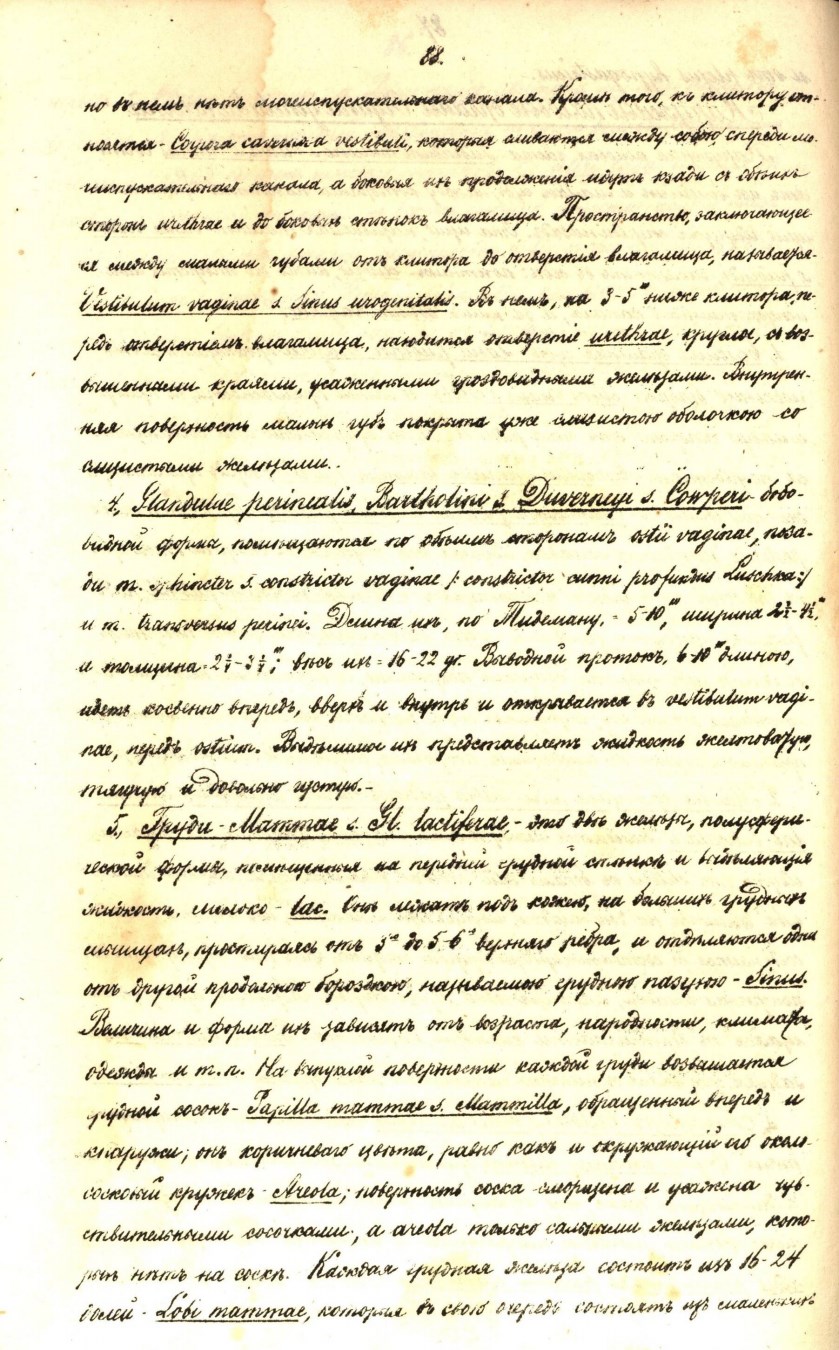 88.
но въ немъ нѣтъ мочеиспускательнаго канала. Кромѣ того, къ клитору от-
носятся - Corpora cavernosa vestibuli, которыя сливаются между собою спереди мо-
чиспускательнаго канала, а боковыя ихъ продолженія идутъ кзади съ обѣихъ
сторонъ urethrae и до боковыхъ стѣнокъ влагалища. Пространство, заключающее-
ся между малыми губами отъ клитора до отверстія влагалища, называется-
Vestibulum vaginae s. Sinus urogenitalis. Въ немъ, на 3-5‴ ниже клитора, пе-
редъ отверстіемъ влагалища, находится отверстіе urethrae, круглое, съ воз-
вышенными краями, усаженными гроздовидными железами. Внутрен-
няя поверхность малыхъ губъ покрыта уже слизистою оболочкою со
слизистыми железами..
4., Glandulae perinealis, Bartholini s. Duverneyi s. Cowperi - бобо-
видной формы, помѣщаются по обѣимъ сторонамъ ostii vaginae, поза-
ди m. sphincter s. constrictor vaginae /: constrictor cunni profundus Luschka :/
и m. transversus perinei. Длина ихъ, по Тидеману, = 5-10‴, ширина 2½-4½‴,
и толщина = 2¼-3¼‴; вѣсъ ихъ = 16-22 gr. Выводной протокъ, 6-10‴ длиною,
идетъ косвенно впередъ, вверхъ и внутрь и открывается въ vestibulum vagi-
nae, передъ ostium. Выдѣлимое ихъ представляетъ жидкость желтоватую,
тягучую и довольно густую. -
5., Груди - Mammae s. Gl. lactiferae, - это двѣ железы, полусфери-
ческой формы, помѣщенныя на передней грудной стѣнкѣ и выдѣляющія
жидкость, молоко - lac. Онѣ лежатъ подъ кожею, на большихъ грудныхъ
мышцахъ, простираясь отъ 3го до 5-6го верхняго ребра, и отдѣляются одна
отъ другой продольною бороздкою, называемою грудною пазухою - Sinus.
Величина и форма ихъ зависятъ отъ возраста, народности, климата,
одежды и т. п. На выпуклой поверхности каждой груди возвышается
грудной сосокъ - Papilla mammae s. Mammilla, обращенный впередъ и
кнаружи; онъ коричневаго цвѣта, равно какъ и окружающій его около-
сосковый кружекъ - Areola; поверхность соска сморщена и усажена чув-
ствительными сосочками, а areola только сальными железами, кото-
рыхъ нѣтъ на соскѣ. Каждая грудная железа состоитъ изъ 16-24
долей - Lobi mammae, которыя въ свою очередь состоятъ изъ маленькихъ